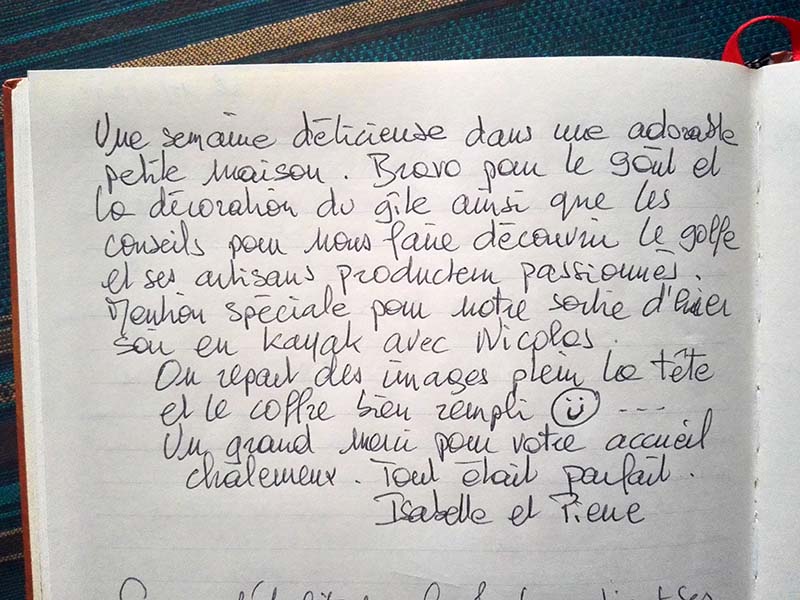 Une semaine délicieuse dans une adorable
petite maison. Bravo pour le goût et
la décoration du gîte ainsi que les
conseils pour nous faire découvrir le golfe
et ses artisans producteurs passionnés.
Mention spéciale pour notre sortie d'hier
soir en kayak avec Nicolas.
On repart des images plein la tête
et le coffre bien rempli ☺ ---
Un grand merci pour votre accueil
chaleureux. Tout était parfait.
Isabelle et Pierre